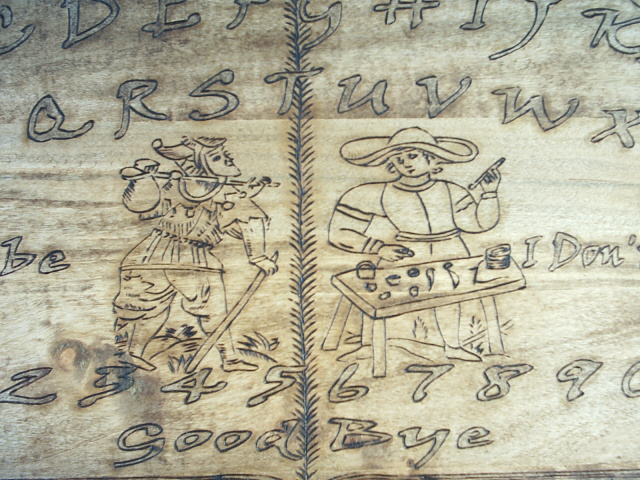 C D E F G H I J K
Q R S T U V W X
be I Don'
2 3 4 5 6 7 8 9 0
Good Bye